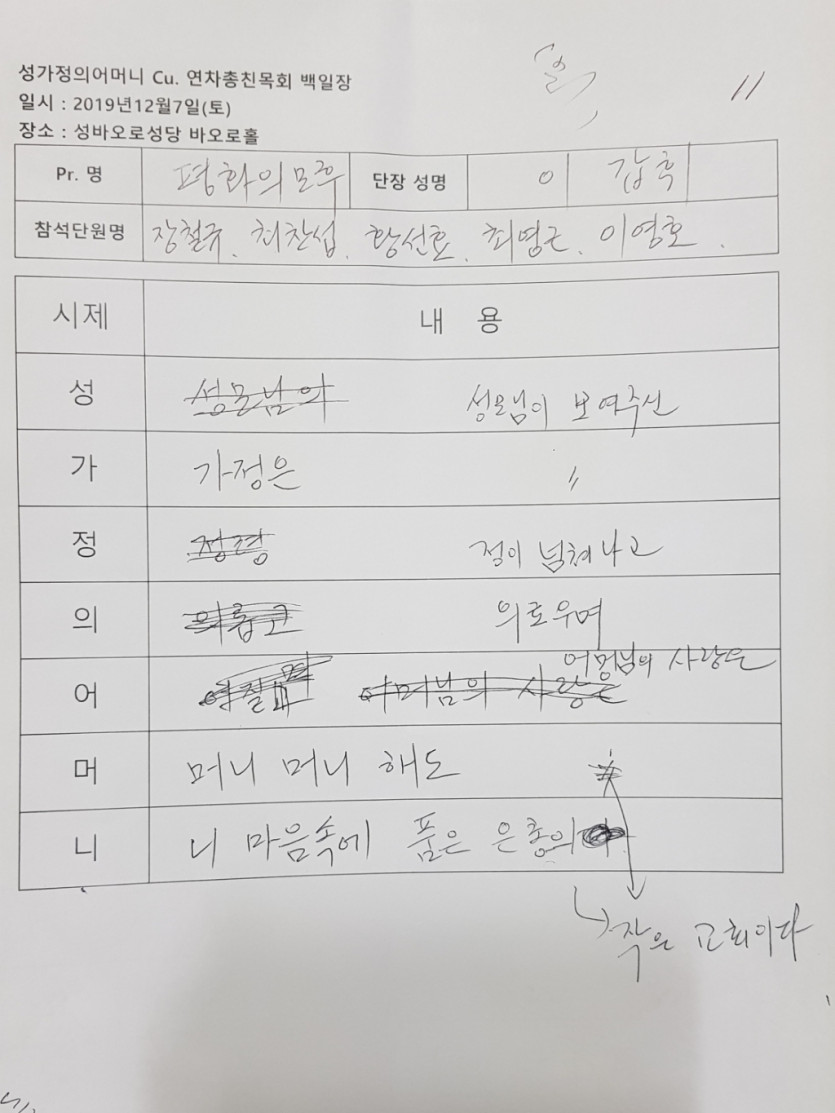 성가정의어머니 Cu. 연차총친목회 백일장
일시 : 2019년12월7일(토)
장소 : 성바오로성당 바오로홀
11
Pr. 명 평화의 모후 단장 성명 이 갑휘
참석단원명 장철규, 최찬섭, 황선호, 최영근, 이영호.
시제 내 용
성 성모님의 성모님이 보여주신
가 가정은 〃
정 정이 넘쳐나고
의 의롭고 의로우며
어 어머님의 사랑은 어멍님의 사랑은
머 머니 머니 해도
니 니 마음속에 품은 은총의
작은 교회이다